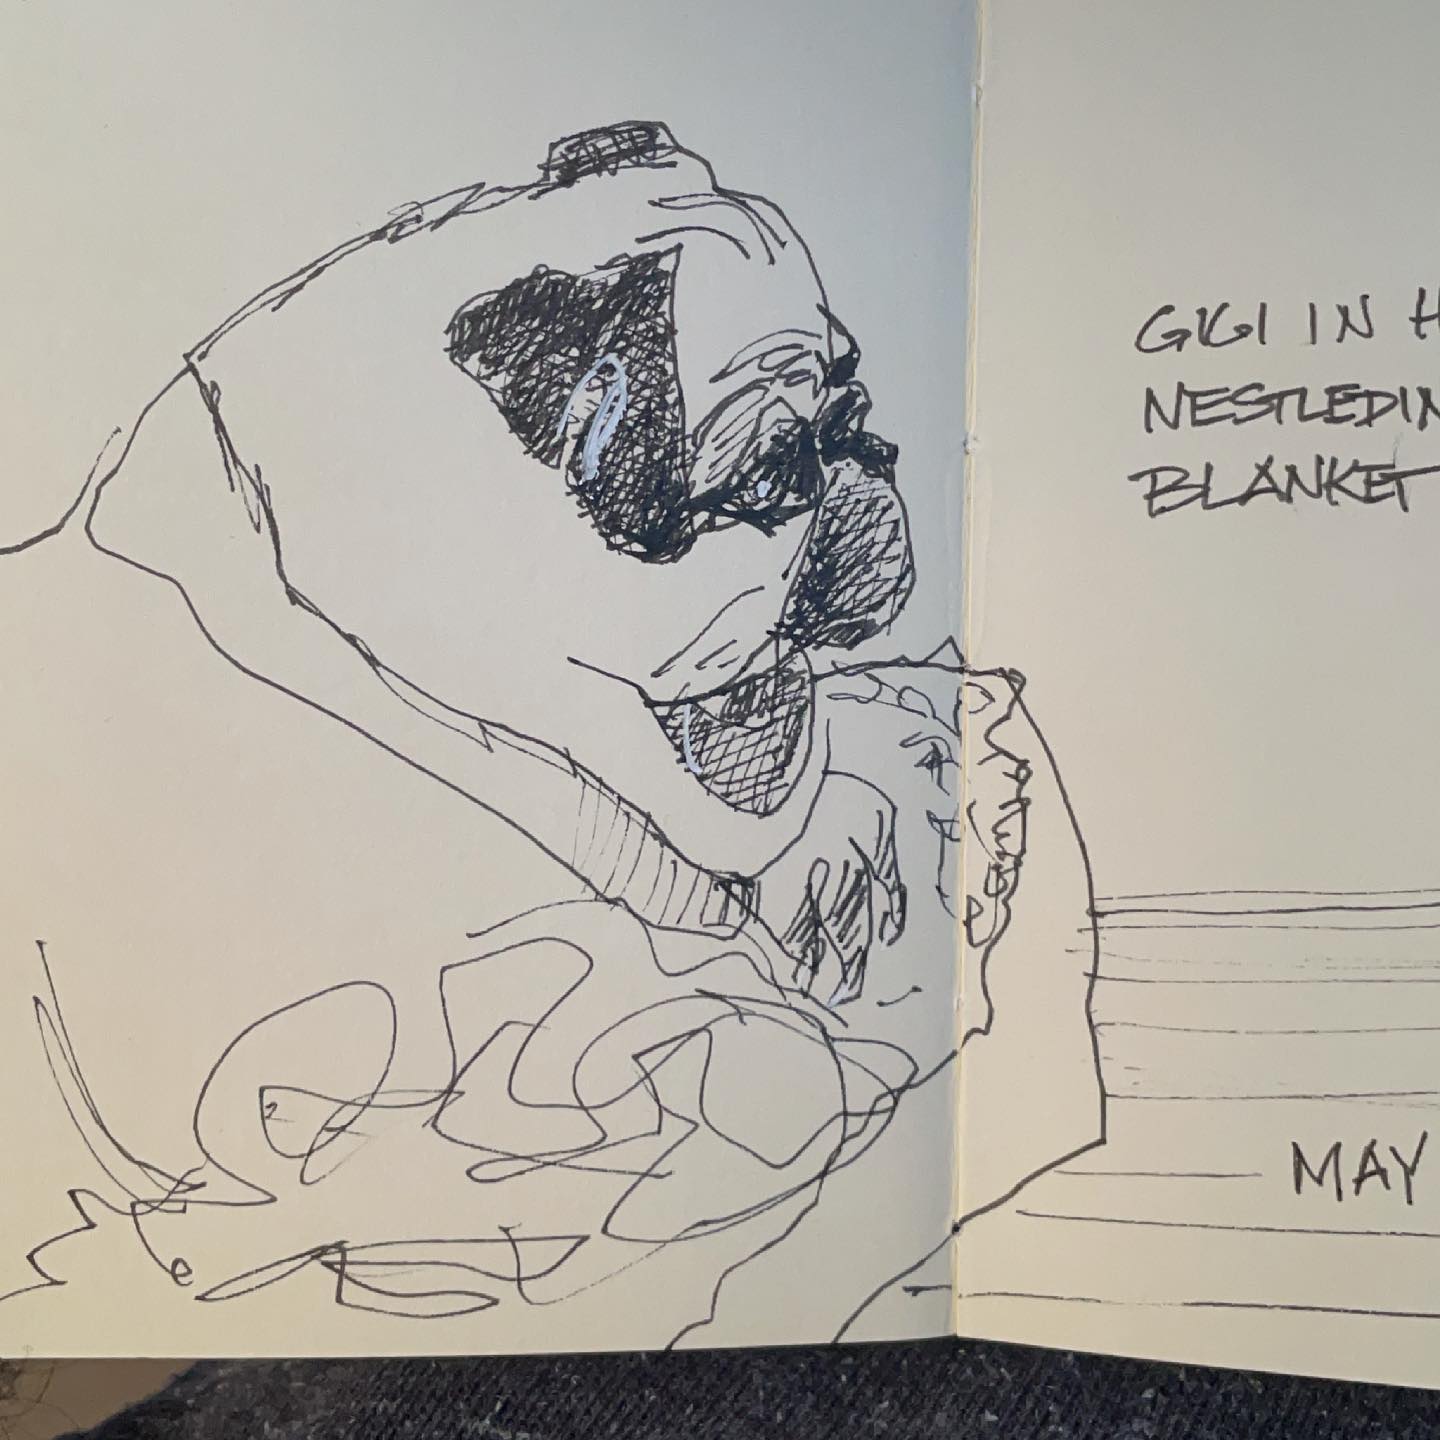 GIGI IN H
NESTLED IN
BLANKET
MAY